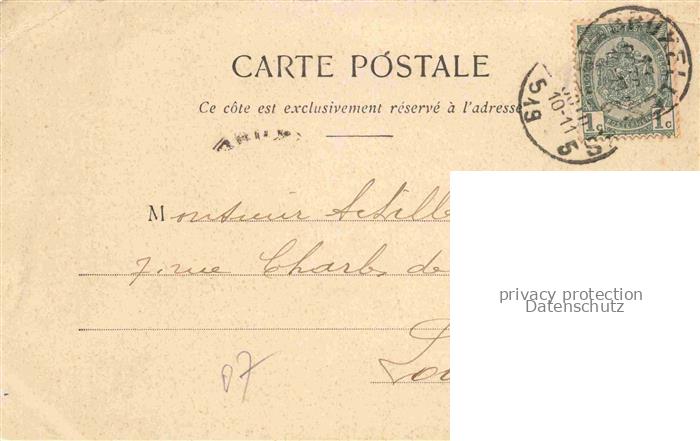 CARTE POSTALE
Ce côte est exclusivement réservé à l'adresse
1c 1c
10-11
5
Monsieur Achille
7. rue Charles de
privacy protection
Datenschutz
07